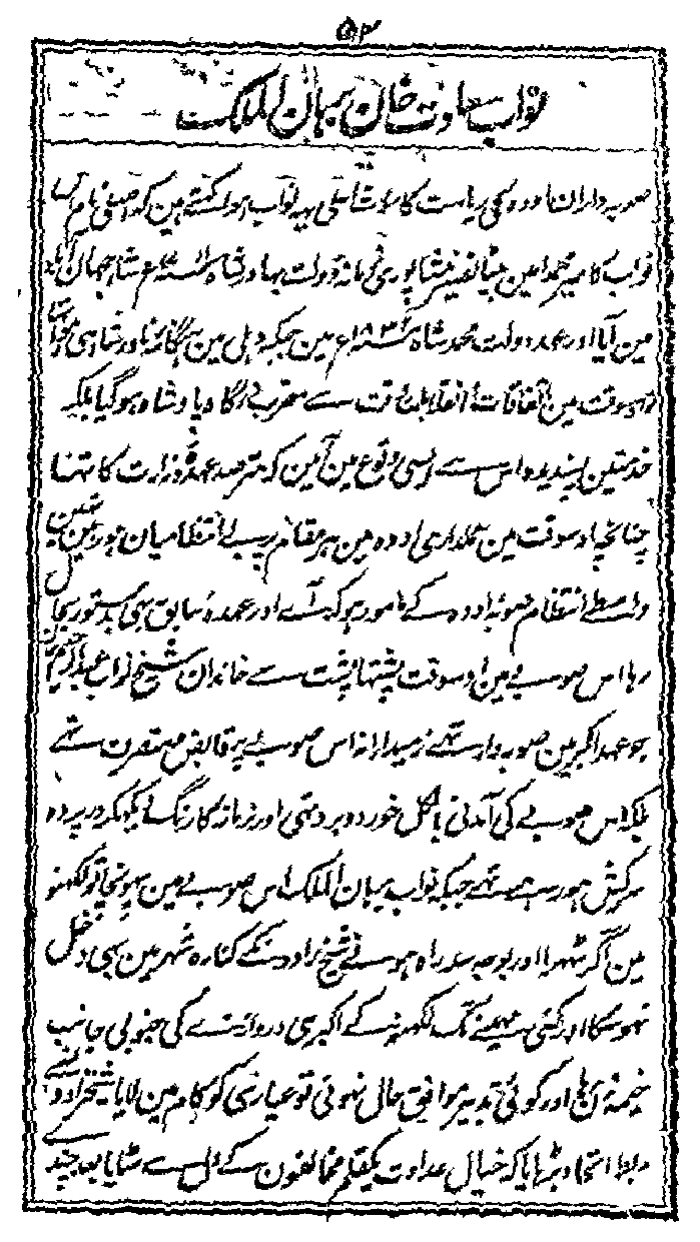 ۵۳
نواب سعادت خان برہان الملک
صوبہ داران اودہ کی ریاست کا مورث اعلی یہہ نواب ہوا کہتے ہین کہ اصلی نام اس
نواب کا میر محمد امین بیٹا نصیر نیشاپوری زمانہ دولت بہادر شاہ مین شاہ جہان آباد
مین آیا اور عہد دولت محمد شاہ مین جبکہ دہلی مین ہنگامہ نادر شاہی تہا
اوسوقت مین اتفاقات انقلاب وقت سے مقرب درگاہ بادشاہ ہوگیا بلکہ
خدمتین پسندیدہ اس سے ایسی وقوع مین آئین کہ مترصد عہدہ وزارت کا تہا
چنانچہ اوسوقت مین عملداری اودہ مین ہر مقام پر بے انتظامیان ہو رہین تہین
واسطے انتظام صوبہ اودہ کے مامور ہو کے آے اور عہدہ سابق بہی بدستور بحال
رہا اس صوبے مین اوسوقت پشتہا پشت سے خاندان شیخ نواب عبدالرحیم خان
جو عہد اکبر مین صوبہ دار تہے زمیندارانہ اس صوبے پر قابض و متصرف تہے
بلکہ اس صوبے کی آمدنی بالکل خورد و برد تہی اور زمانہ کا رنگ دیکہکر در پردہ
سرکش ہو رہے تہے جبکہ نواب برہان الملک اس صوبے مین پہونچا تو لکہنو
مین آکر ٹہرا اور بوجہ سد راہ ہونے شیخ زادونکے کنارہ شہر مین بہی دخل
نہو سکا اور کئی مہینے تک لکہنو کے اکبری دروازے کی جنوبی جانب
خیمہ زن رہا اور کوئی تدبیر موافق حال نہوئی تو عیاری کو کام مین لایا شیخزادونسے
ربط اتحاد بڑہایا کہ خیال عداوت یکقلم مخالفون کے دل سے مٹایا بعد چند